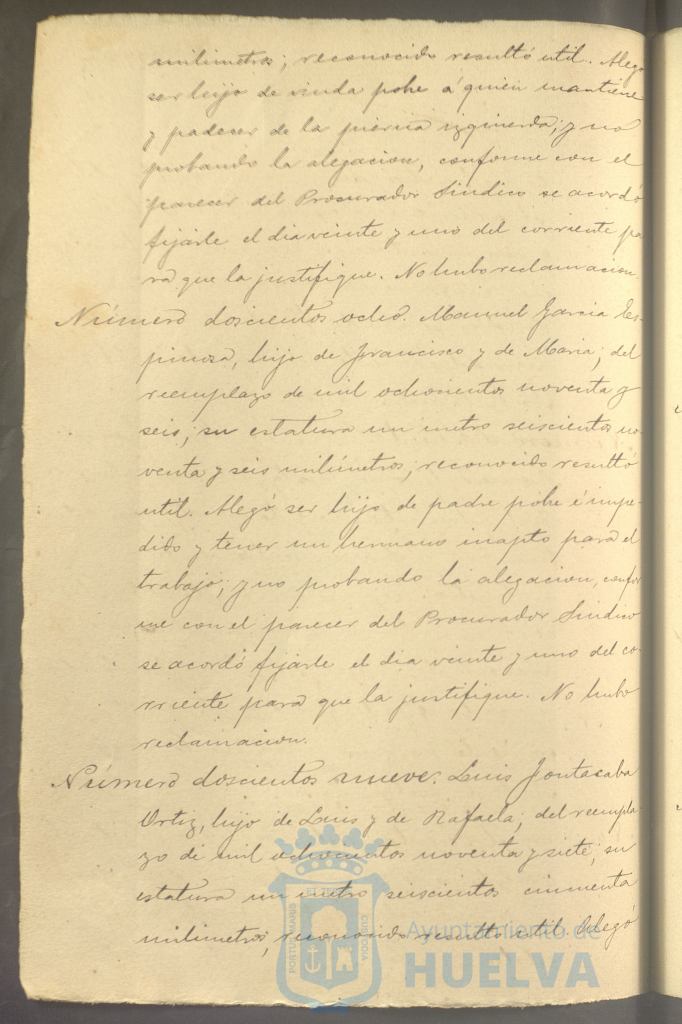 milimetros; reconocido resultó util. Alegó
ser hijo de viuda pobre á quien mantiene
y padecer de la pierna izquierda; y no
probando la alegacion, conforme con el
parecer del Procurador Sindico se acordó
fijarle el dia veinte y uno del corriente pa
ra que la justifique. No hubo reclamacion.
Número doscientos ocho. Manuel Garcia Es-
pinosa, hijo de Francisco y de Maria; del
reemplazo de mil ochosientos noventa y
seis; su estatura un metro seiscientos no
venta y seis milímetros; reconocido resultó
util. Alegó ser hijo de padre pobre é impe-
dido y tener un hermano inapto para el
trabajo; y no probando la alegacion, confor
me con el parecer del Procurador Sindico
se acordó fijarle el dia veinte y uno del co-
rriente para que la justifique. No hubo
reclamacion.
Número doscientos nueve. Luis
Ortiz, hijo de Luis y de Rafaela; del reempla-
zo de mil ochocientos noventa y siete; su
estatura un metro seiscientos cincuenta
milimetros; reconocido resultó util. Alegó
PORTUS MARIS CUSTODIA
Ayuntamiento de
HUELVA